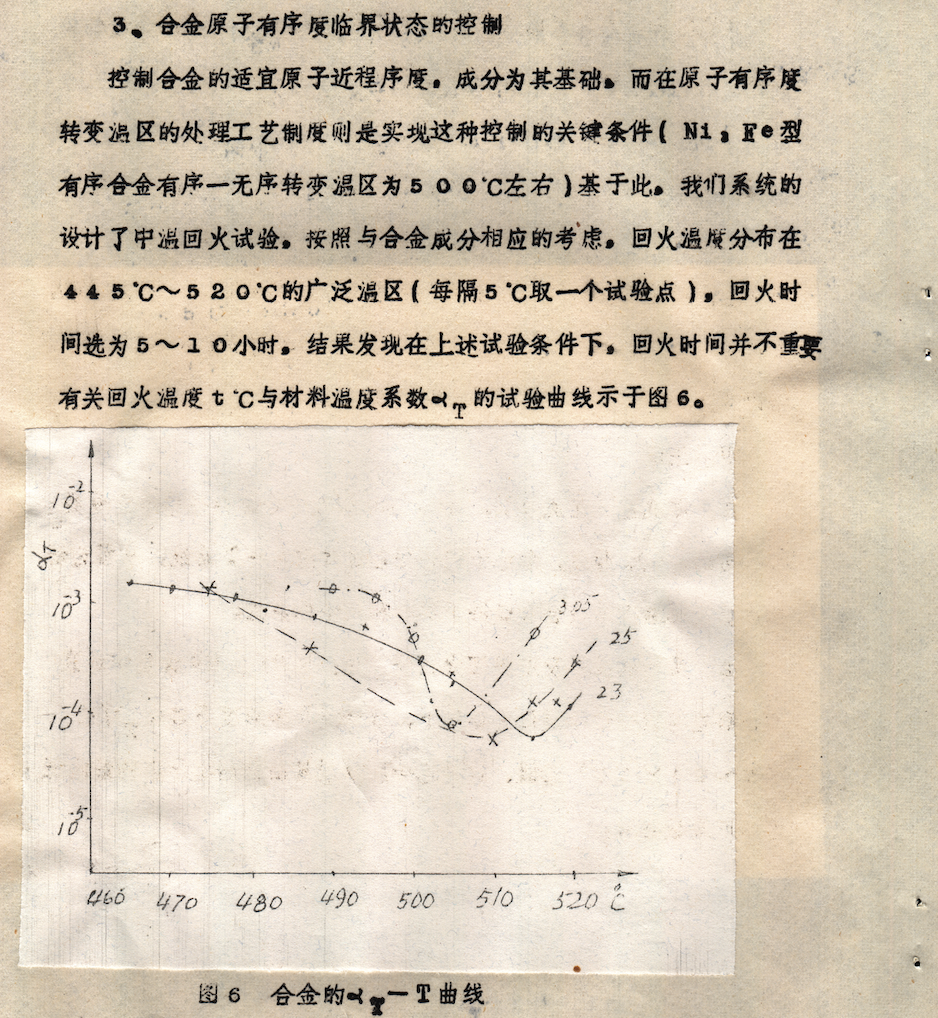 3。合金原子有序度临界状态的控制
控制合金的适宜原子近程序度。成分为其基础。而在原子有序度
转变温区的处理工艺制度则是实现这种控制的关键条件(Ni₃Fe型
有序合金有序—无序转变温区为500℃左右)基于此。我们系统的
设计了中温回火试验。按照与合金成分相应的考虑。回火温度分布在
445℃～520℃的广泛温区(每隔5℃取一个试验点)。回火时
间选为5～10小时。结果发现在上述试验条件下。回火时间并不重要
有关回火温度t℃与材料温度系数α_T的试验曲线示于图6。
10⁻²
α_T
10⁻³
10⁻⁴
10⁻⁵
3.05
25
23
460 470 480 490 500 510 520 ℃
图6 合金的α_T—T曲线